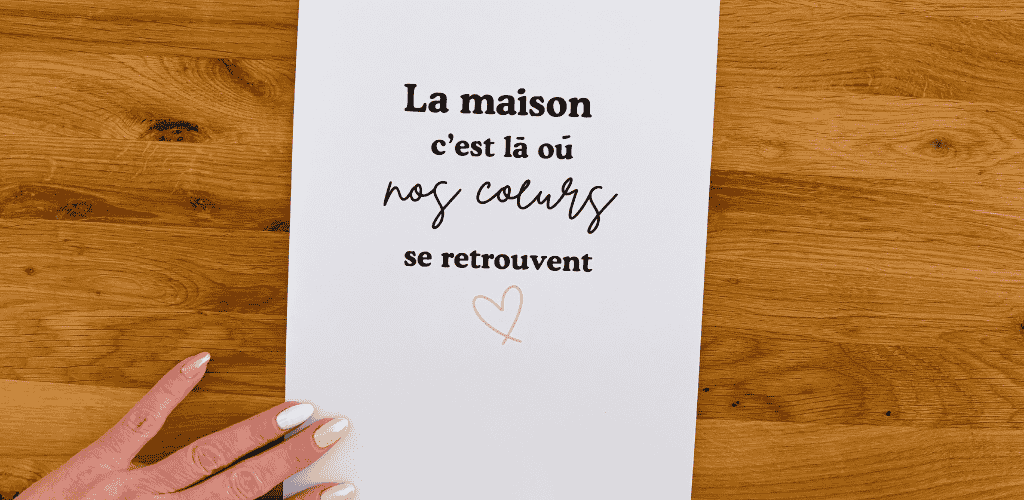 La maison
c'est lā oú
nos cœurs
se retrouvent